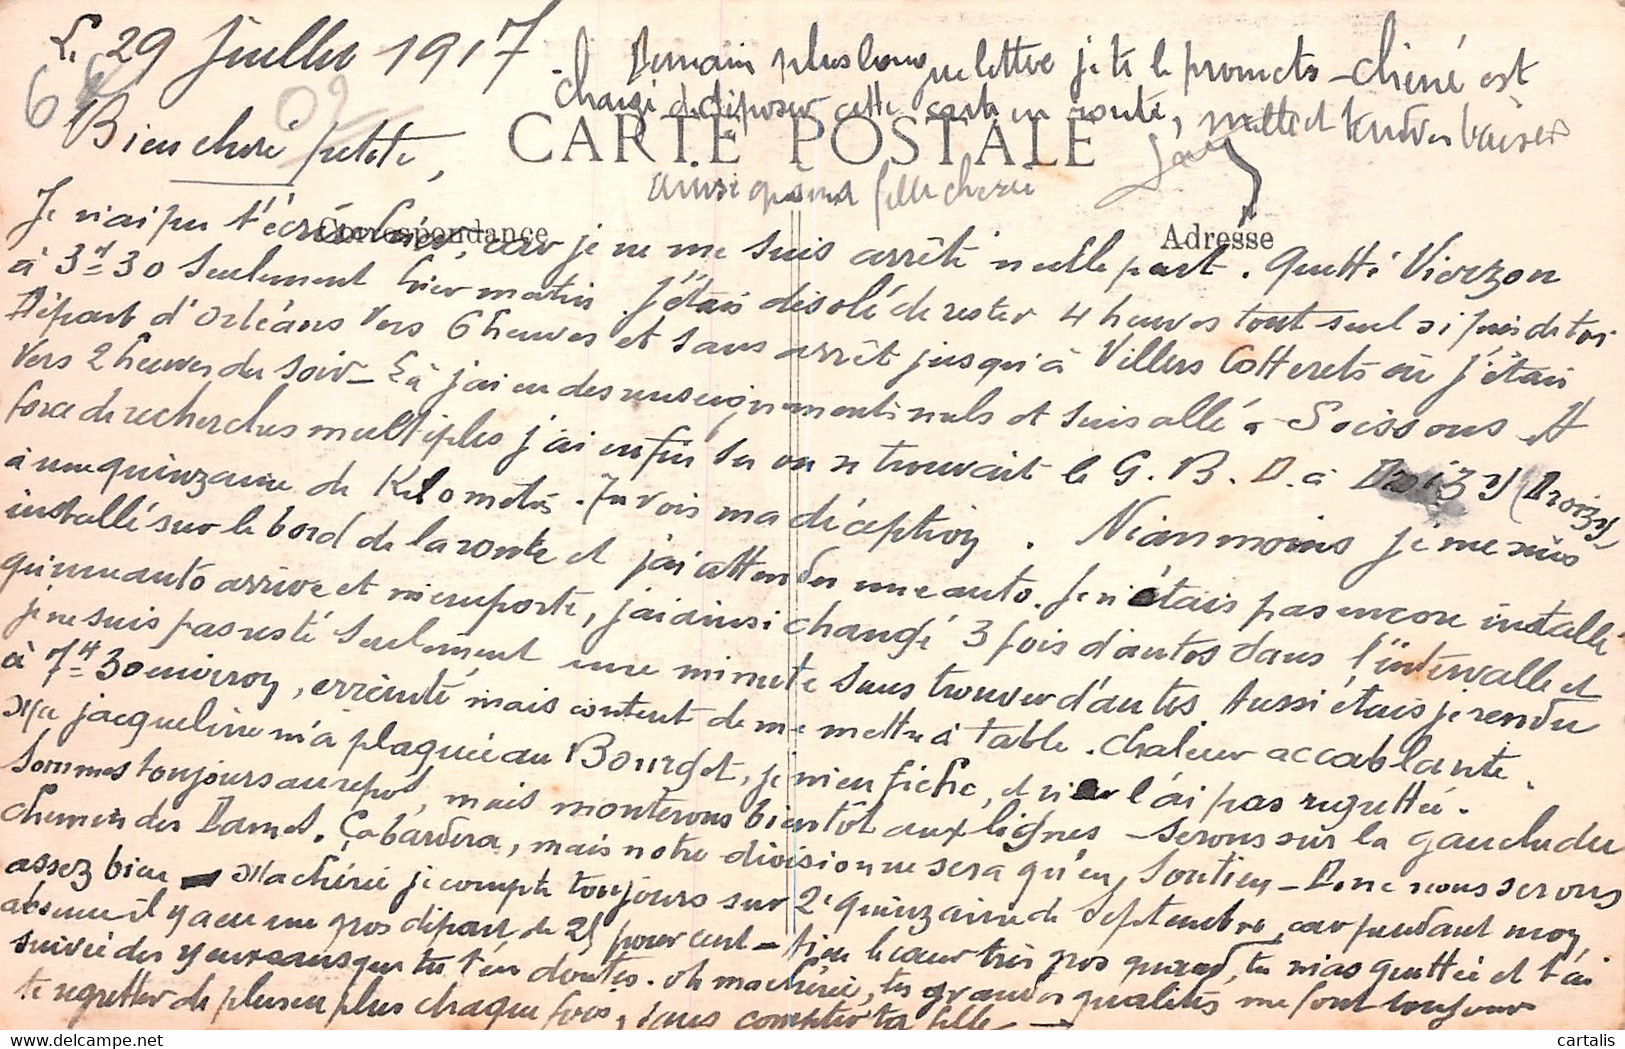 Le 29 Juillet 1917
Demain plus longue lettre je te le promets - Chéné est
chargé de déposer cette carte en route, mille et tendres baisers
CARTE POSTALE
Bien chère petite,
ainsi qu'à ma fille cherie
Correspondance
Adresse
Je n'ai pu t'écrire hier, car je ne me suis arrêté nulle part. Quitté Vierzon
à 3h 30 seulement hier matin. J'étais désolé de rester 4 heures tout seul si près de toi
Départ d'Orléans vers 6 heures et sans arrêt jusqu'à Villers Cotterets où j'étais
vers 2 heures du soir - Là j'ai eu des renseignements nuls et suis allé à Soissons A
force de recherches multiples j'ai enfin su où se trouvait le G. B. D. à Droizy (Droizy
à une quinzaine de Kilomètres. Tu vois ma déception. Néanmoins je me suis
installé sur le bord de la route et j'ai attendu une auto. Je n'étais pas encore installé
qu'une auto arrive et m'emporte, j'ai ainsi changé 3 fois d'autos dans l'intervalle et
je ne suis pas resté seulement une minute sans trouver d'autos Aussi étais je rendu
à 7h 30 environ, éreinté mais content de me mettre à table. Chaleur accablante.
Ma jacqueline m'a plaquée au Bourget, je m'en fiche, et ne l'ai pas regrettée.
Sommes toujours au repos, mais monterons bientôt aux lignes - Serons sur la gauche du
Chemin des Dames. Ça bardera, mais notre division ne sera qu'en soutien - Donc nous serons
assez bien - Ma chérie je compte toujours sur 2e quinzaine de Septembre, car pendant mon
absence il y a eu un gros départ de 25 pour cent - J'ai eu le cœur très gros quand tu m'as quitté et t'ai
suivie des yeux sans que tu t'en doutes. Oh ma chérie, tes grandes qualités me font toujours
te regretter de plus en plus chaque fois, sans compter ta fille -
cartalis
www.delcampe.net